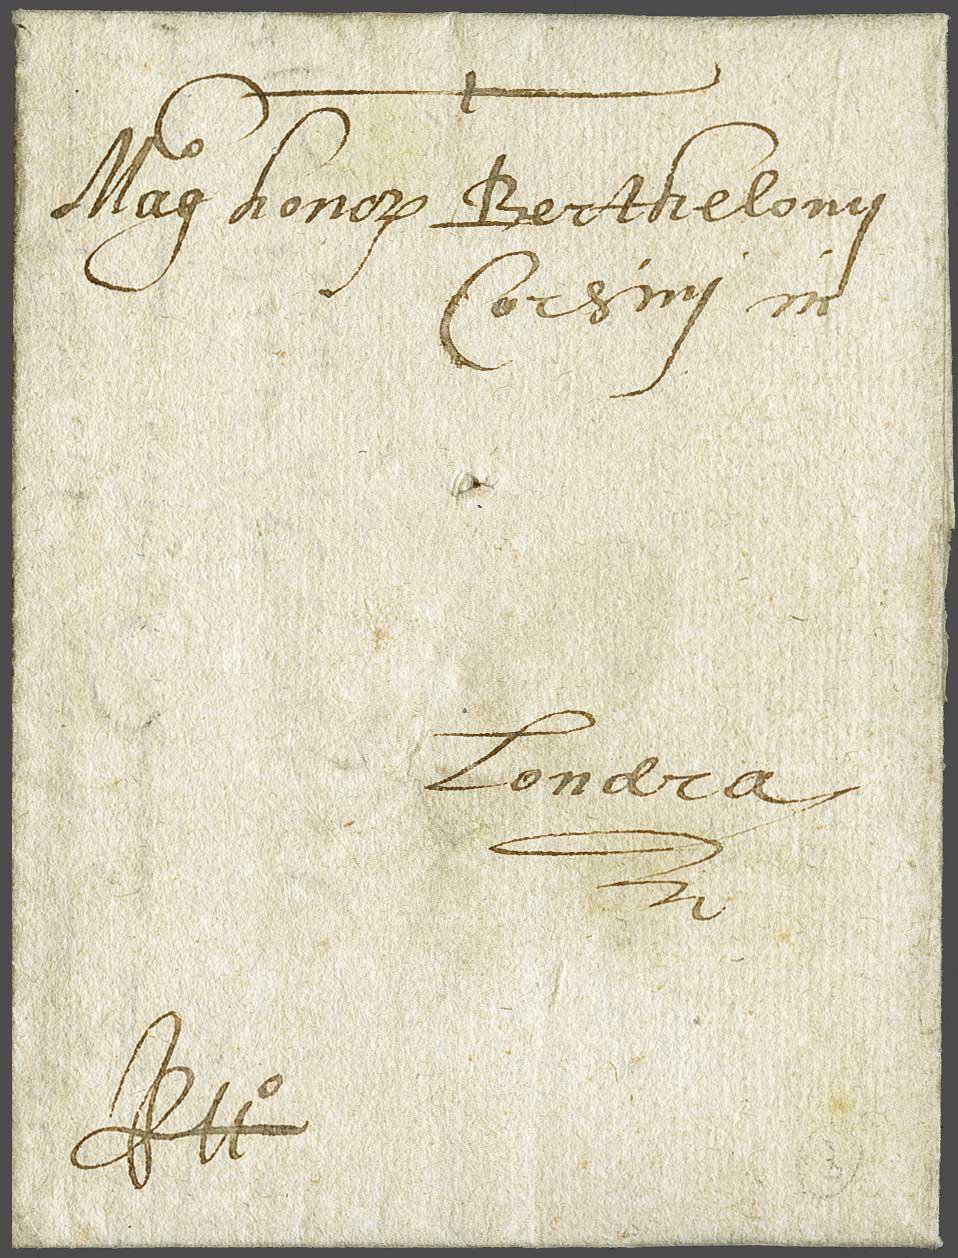 Mag.o honor Berthelomy
Corsinj in
Londra